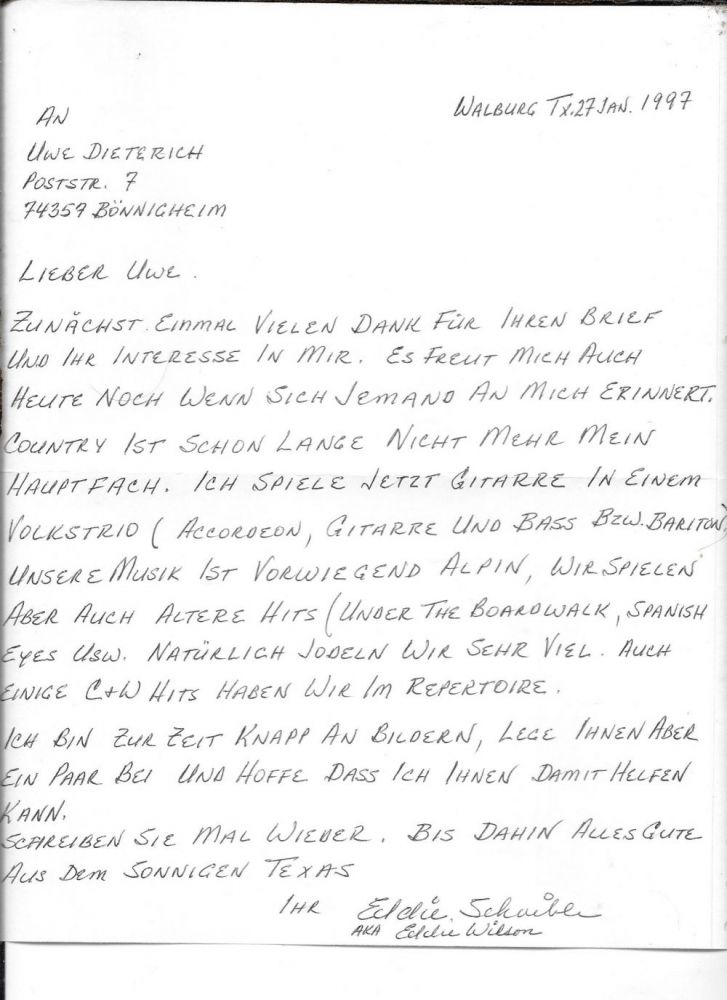 WALBURG TX. 27 JAN. 1997
AN
UWE DIETERICH
POSTSTR. 7
74357 BÖNNIGHEIM
LIEBER UWE.
ZUNÄCHST EINMAL VIELEN DANK FÜR IHREN BRIEF
UND IHR INTERESSE IN MIR. ES FREUT MICH AUCH
HEUTE NOCH WENN SICH JEMAND AN MICH ERINNERT.
COUNTRY IST SCHON LANGE NICHT MEHR MEIN
HAUPTFACH. ICH SPIELE JETZT GITARRE IN EINEM
VOLKSTRIO (ACCORDEON, GITARRE UND BASS BZW. BARITON)
UNSERE MUSIK IST VORWIEGEND ALPIN, WIR SPIELEN
ABER AUCH ALTERE HITS (UNDER THE BOARDWALK, SPANISH
EYES USW. NATÜRLICH JODELN WIR SEHR VIEL. AUCH
EINIGE C+W HITS HABEN WIR IM REPERTOIRE.
ICH BIN ZUR ZEIT KNAPP AN BILDERN, LEGE IHNEN ABER
EIN PAAR BEI UND HOFFE DASS ICH IHNEN DAMIT HELFEN
KANN.
SCHREIBEN SIE MAL WIEDER. BIS DAHIN ALLES GUTE
AUS DEM SONNIGEN TEXAS
IHR Eddie Schaible
AKA Eddie Wilson